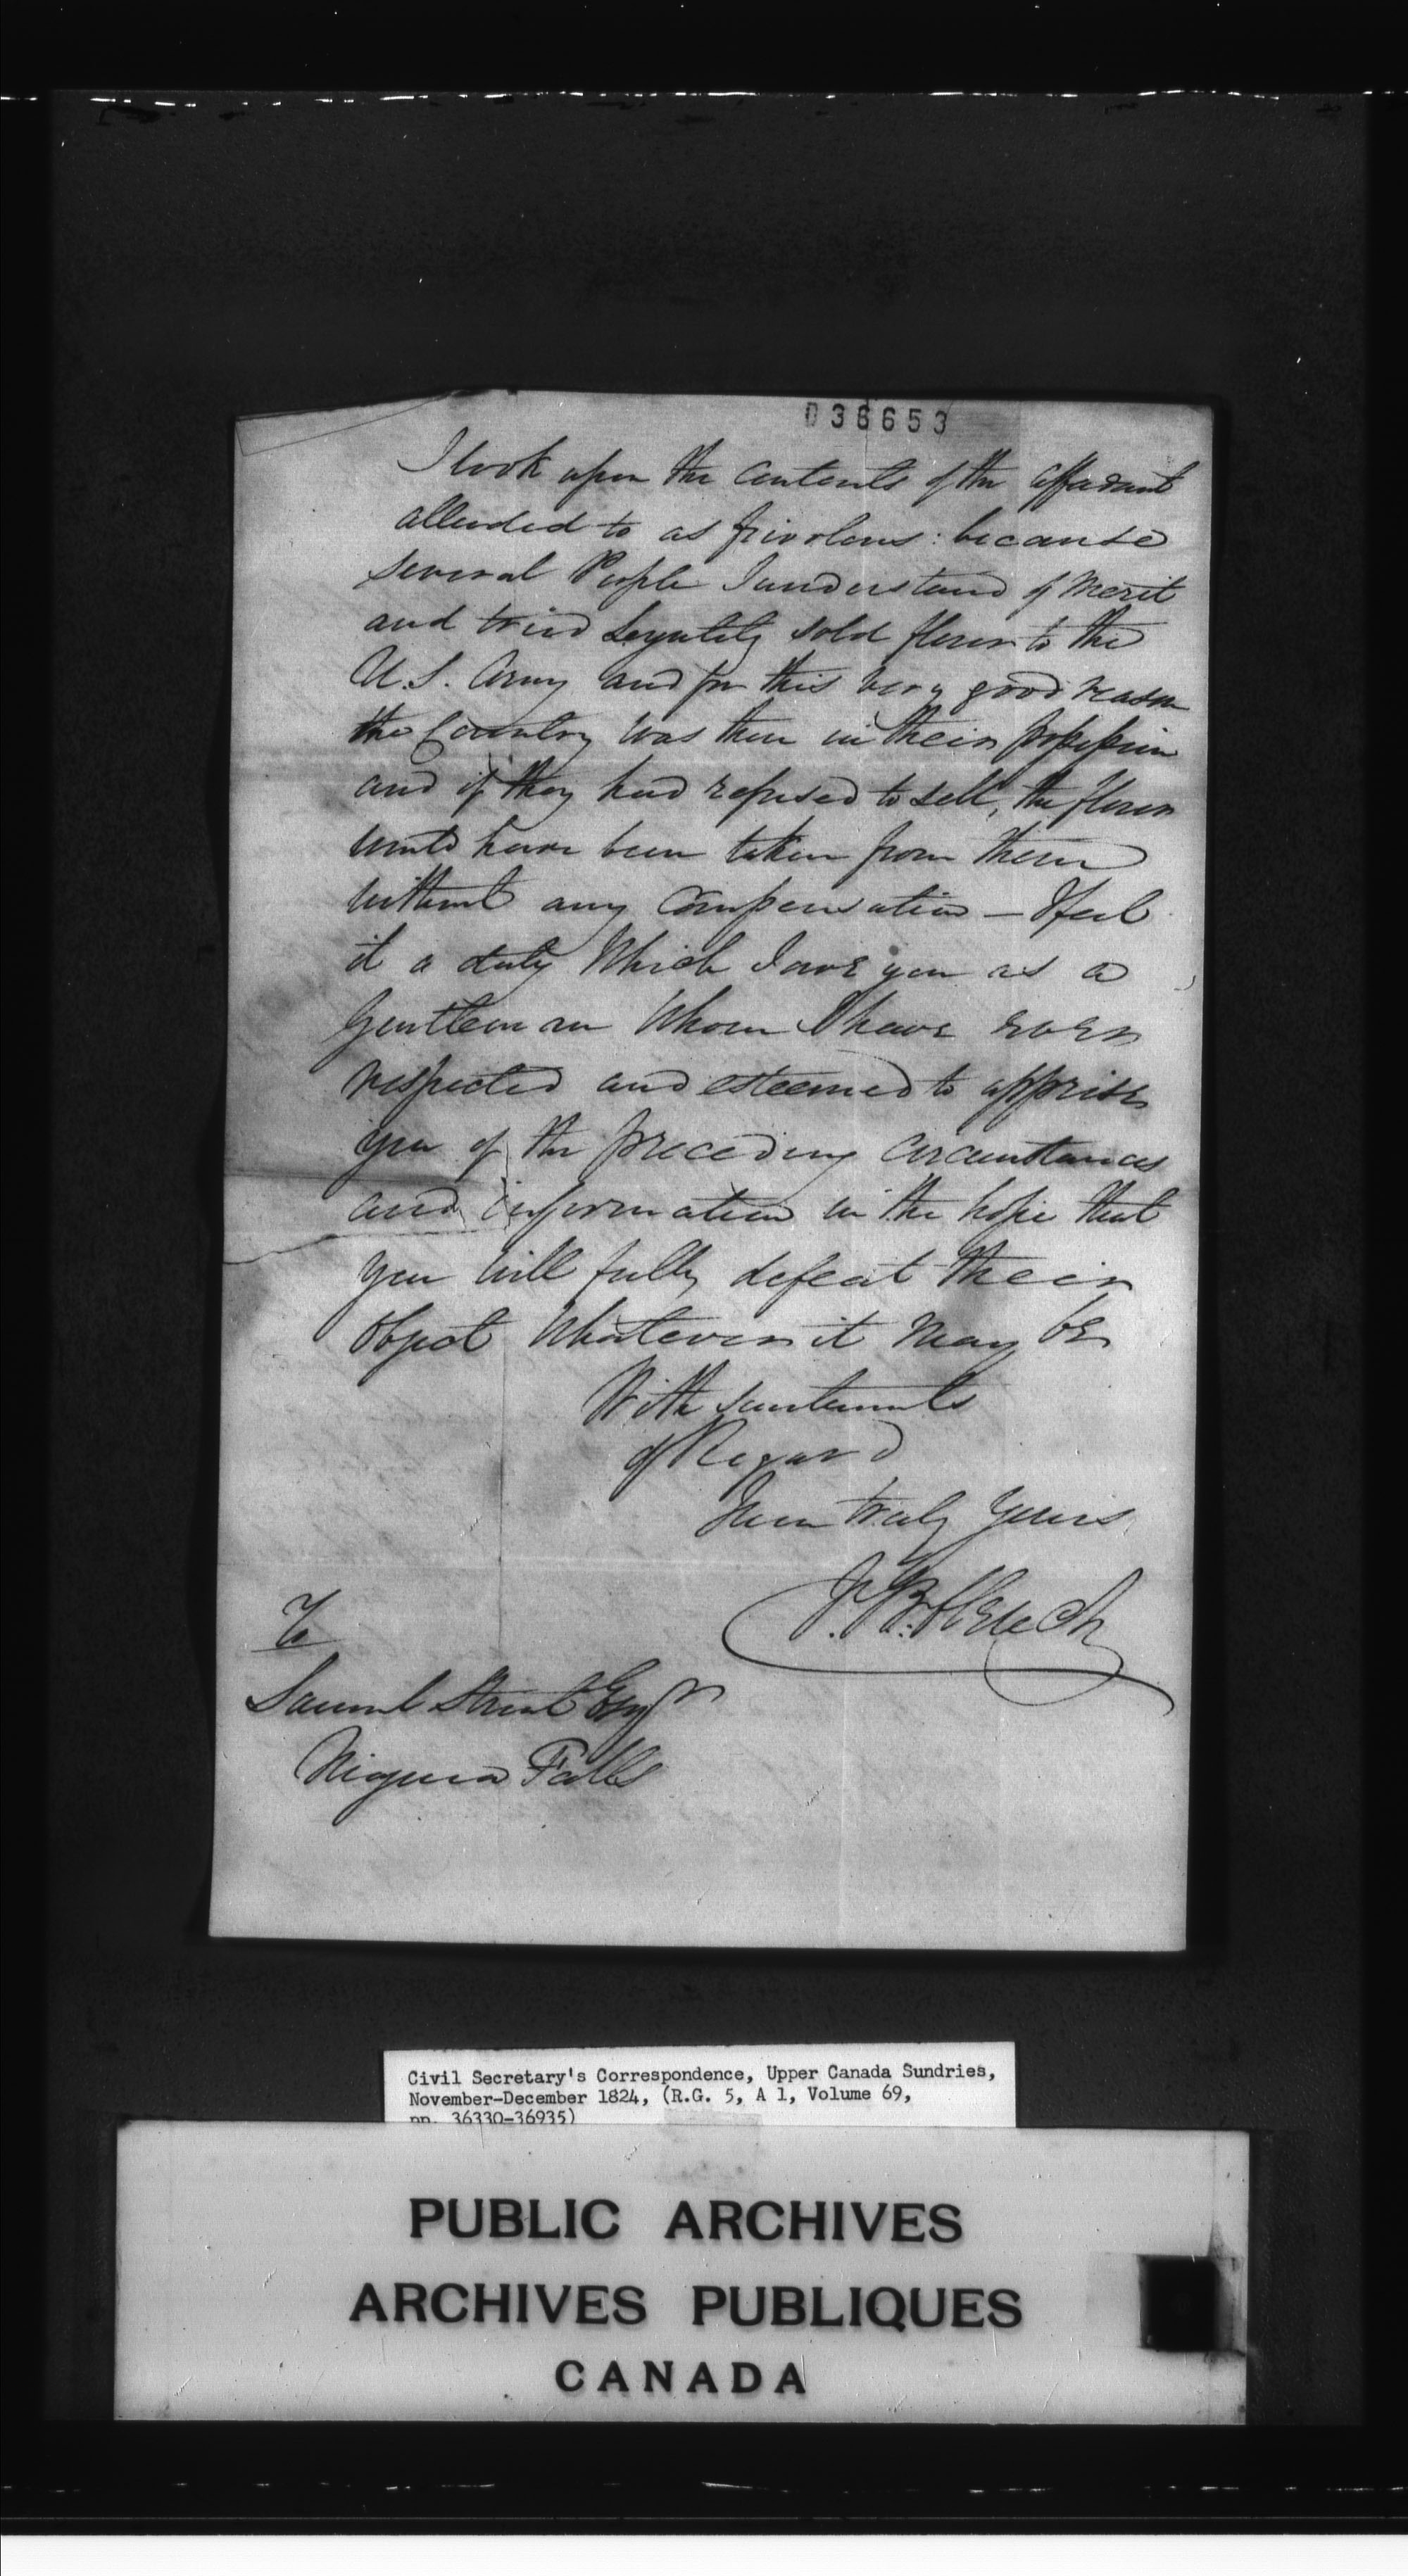 036653
I look upon the contents of the affadavit
alluded to as frivolous: because
several People I understand of Merit
and tried Loyality sold flour to the
U.S. Army and for this very good reason
the Country was then in their possession
and if they had refused to sell, the flour
would have been taken from them
without any compensation — I feel
it a duty Which I owe you as a
Gentleman Whom I have ever
respected and esteemed to apprise
you of the preceding circumstances
and information in the hope that
you will fully defeat their
object Whatever it may be
With sentiments
of Regard
I am truly yours
J. B. Clench
To
Samuel Street Esqr
Niagara Falls
Civil Secretary's Correspondence, Upper Canada Sundries,
November-December 1824, (R.G. 5, A 1, Volume 69,
pp. 36330-36935)
PUBLIC ARCHIVES
ARCHIVES PUBLIQUES
CANADA